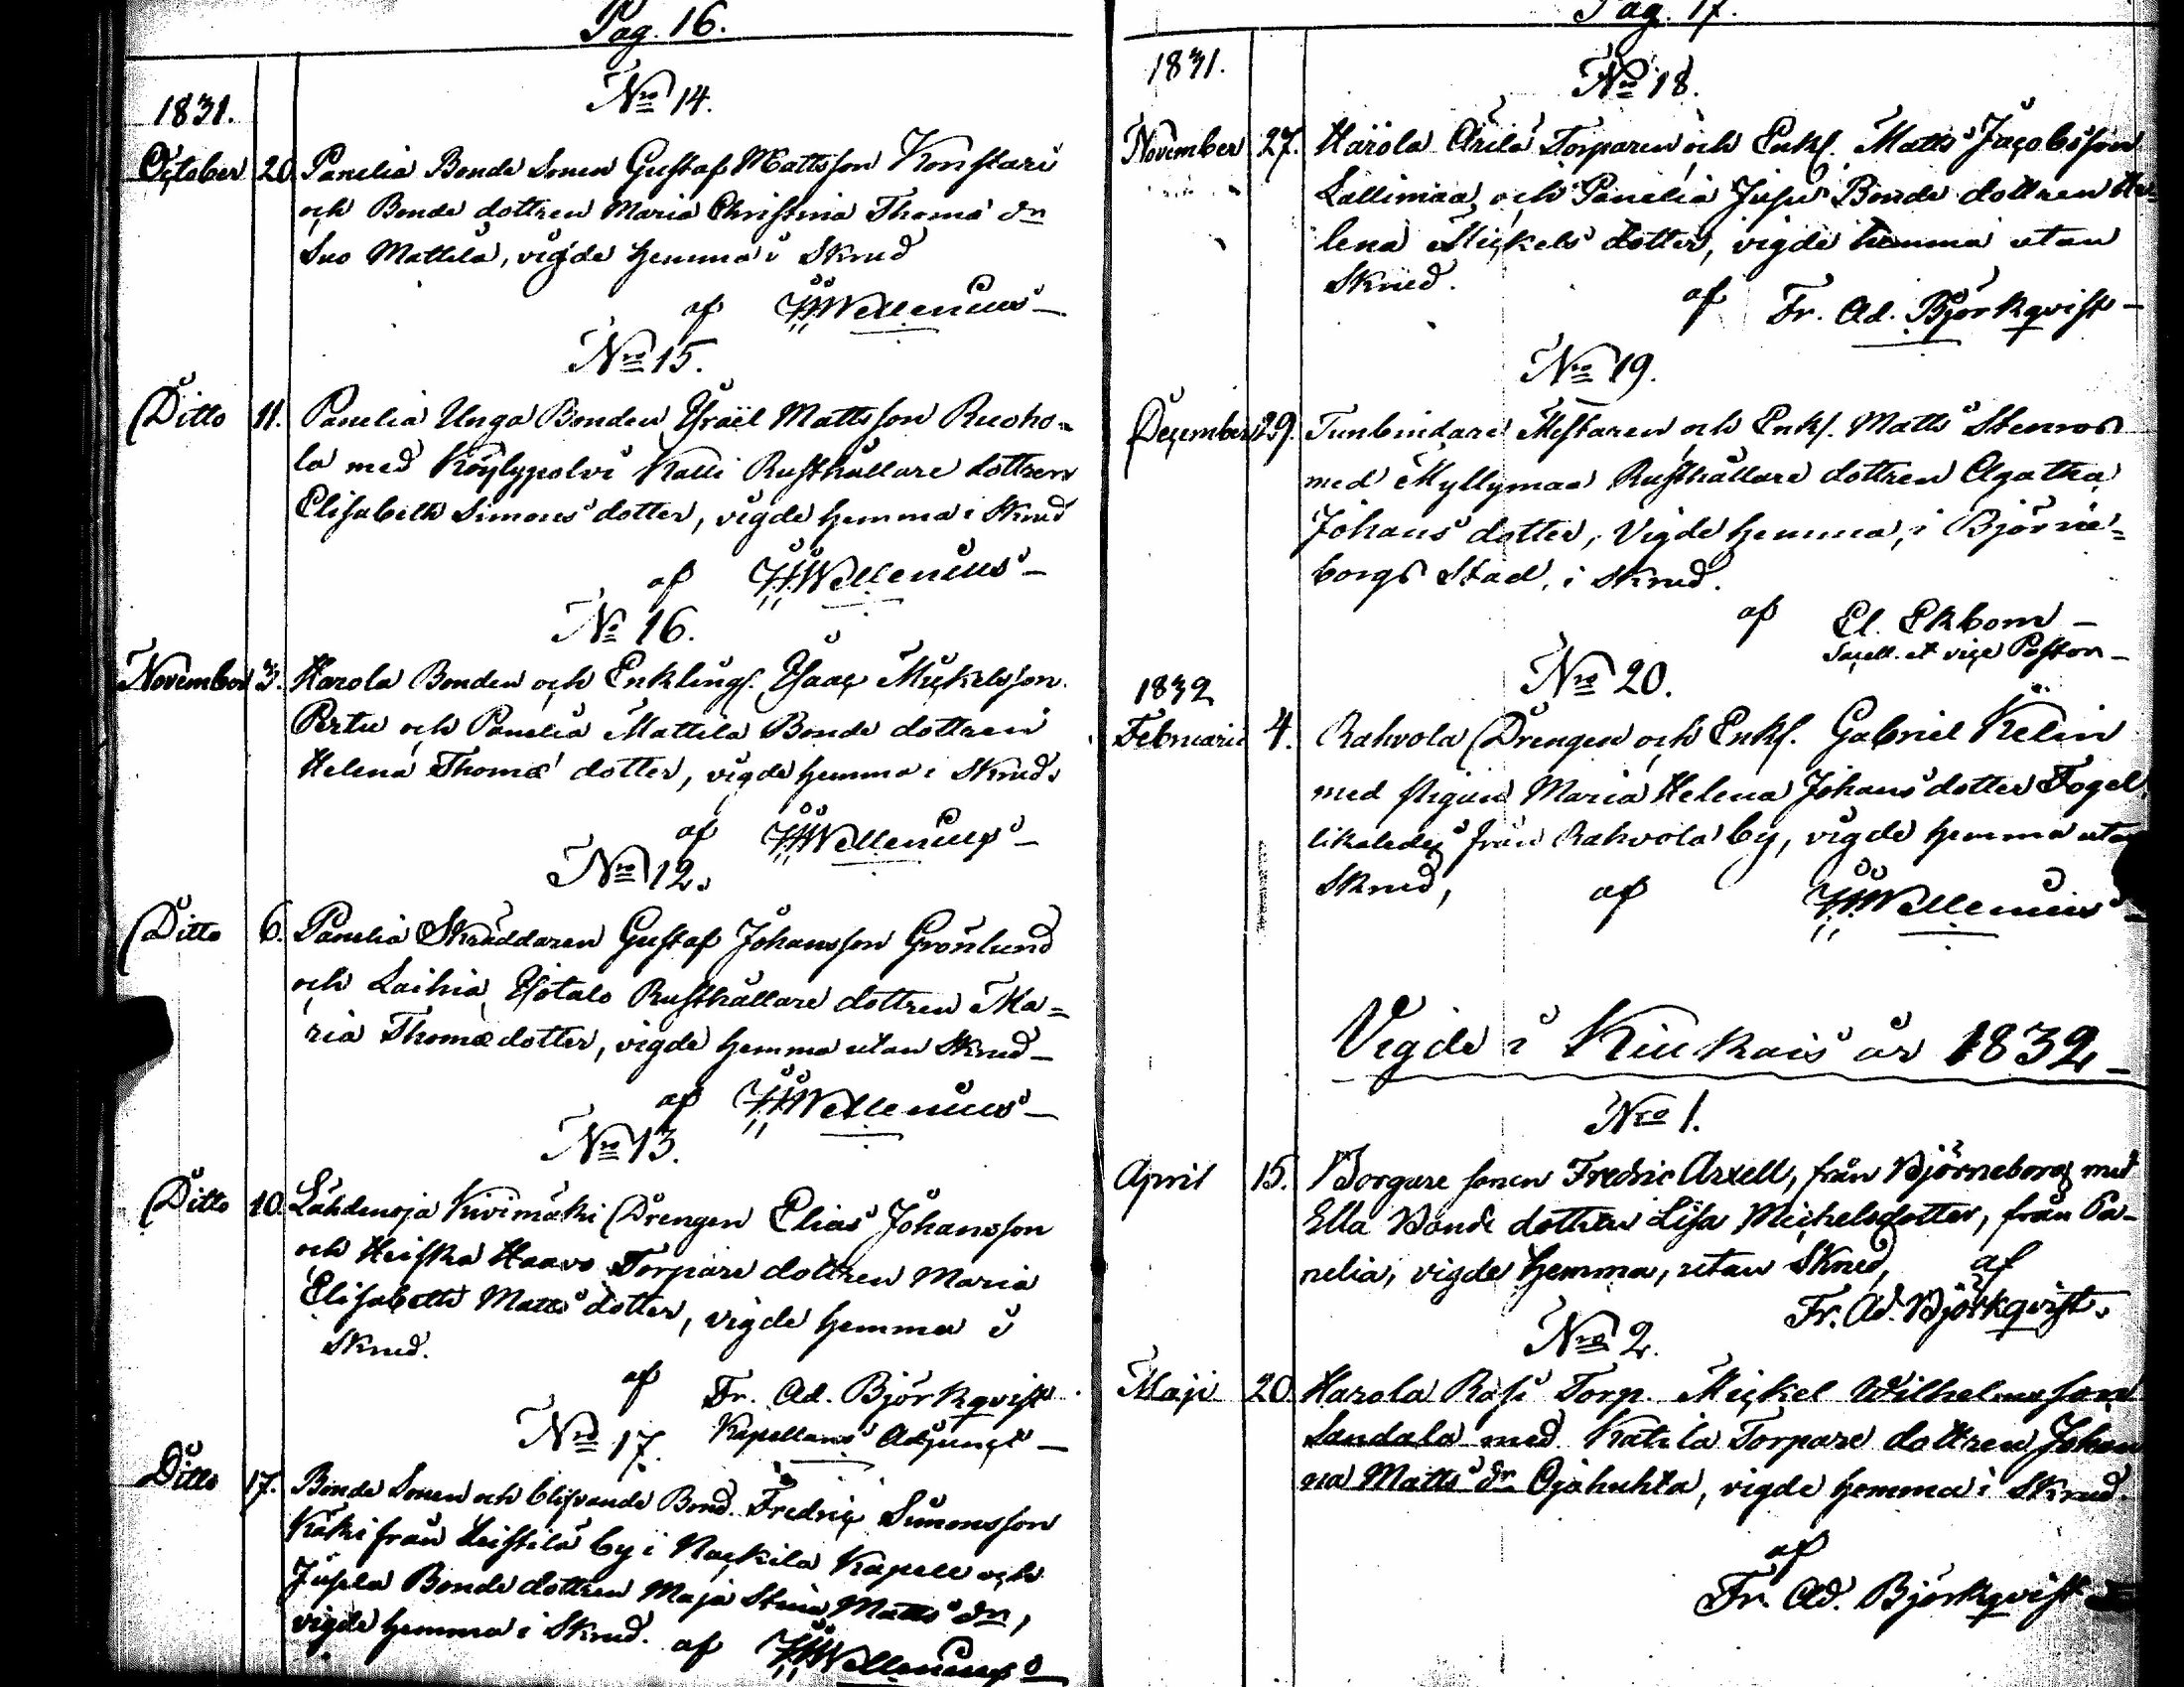 Pag. 16.
1831.
Nro 14.
October 20. Panelia Bonde Sonen Gustaf Mattsson Konstari
och Bonde dottren Maria Christina Thomæ dr
Suo Mattila, vigde hemma i Skrud
af HHWellenius
Nro 15.
Ditto 11. Panelia Unga Bonden Ysraël Mattsson Ruoho=
la med Köylypolvi Kalli Rusthållare dottren
Elisabeth Simons dotter, vigde hemma i Skrud
af HHWellenius
No 16.
November 3. Harola Bonden och Enkling. Ysaac Mickelsson
Pertu och Panelia Mattila Bonde dottren
Helena Thomæ dotter, vigde hemma i Skrud.
af HHWellenius
Nro 12.
Ditto 6. Panelia Skräddaren Gustaf Johansson Grönlund
och Laihia Isotalo Rusthållare dottren Ma=
ria Thomædotter, vigde hemma utan Skrud
af HHWellenius
Nro 13.
Ditto 10. Lähdenoja Kivimäki Drengen Elias Johansson
och Heiska Haavo Torpare dottren Maria
Elisabeth Matts dotter, vigde hemma i
Skrud.
af Fr. Ad. Björkqvist
Kapellans Adjunct
Nro 17.
Ditto 17. Bonde Sonen och blifvande Bond. Fredric Simonsson
Käki från Leistilä by i Nackila Kapell och
Jusela Bonde dottren Maja Stina Matts dr,
vigde hemma i Skrud. af HHWellenius
Pag. 17.
1831.
Nro 18.
November 27. Harola Torparen och Enkl. Matts Jacobsson
Lallimaa, och Panelia Jusu Bonde dottren He=
lena Mickels dotter, vigde hemma utan
Skrud.
af Fr. Ad. Björkqvist
Nro 19.
December 29. Tunbindare Mästaren och Enkl. Matts Stenros
med Myllymaa Rusthållare dottren Agatha
Johans dotter, Vigde hemma, i Björne=
borgs Stad, i Skrud.
af El. Ekbom
Sacell. et vice Pastor
Nro 20.
1832
Februarii 4. Rahvola Drengen och Enkl. Gabriel Kelin
med pigan Maria Helena Johans dotter Fogel,
likaledes från Rahvola by, vigde hemma utan
Skrud, af HHWellenius
Vigde i Kiukais år 1832
Nro 1.
April 15. Borgare sonen Fredric Axell, från Björneborg med
Ella Bonde dottren Lisa Mickelsdotter, från Pa-
nelia, vigde hemma, utan Skrud, af
Fr. Ad. Björkqvist.
Nro 2.
Maji 20. Harola Rasi Torp. Mickel Wilhelmsson
Sandala med Katila Torpare dottren Johan
na Matts dr Ojahuhta, vigde hemma i Skrud.
af
Fr. Ad. Björkqvist